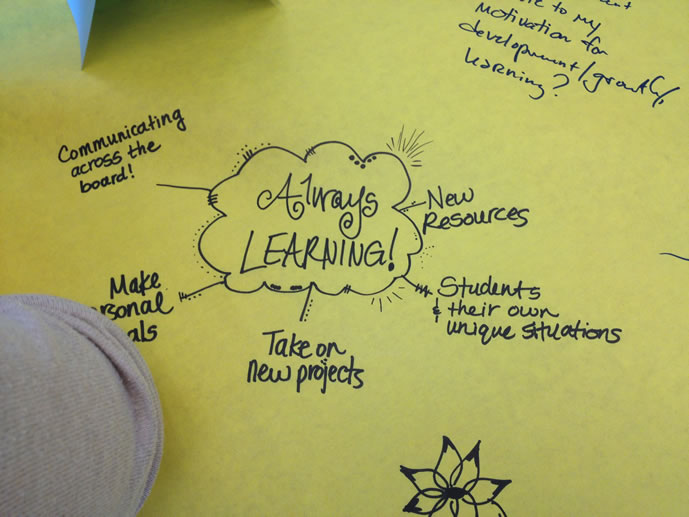 to my
motivation for
development/growth,
learning?
Communicating
across the
board!
Always
LEARNING!
New
Resources
Students
& their own
unique situations
Make
Take on
new projects